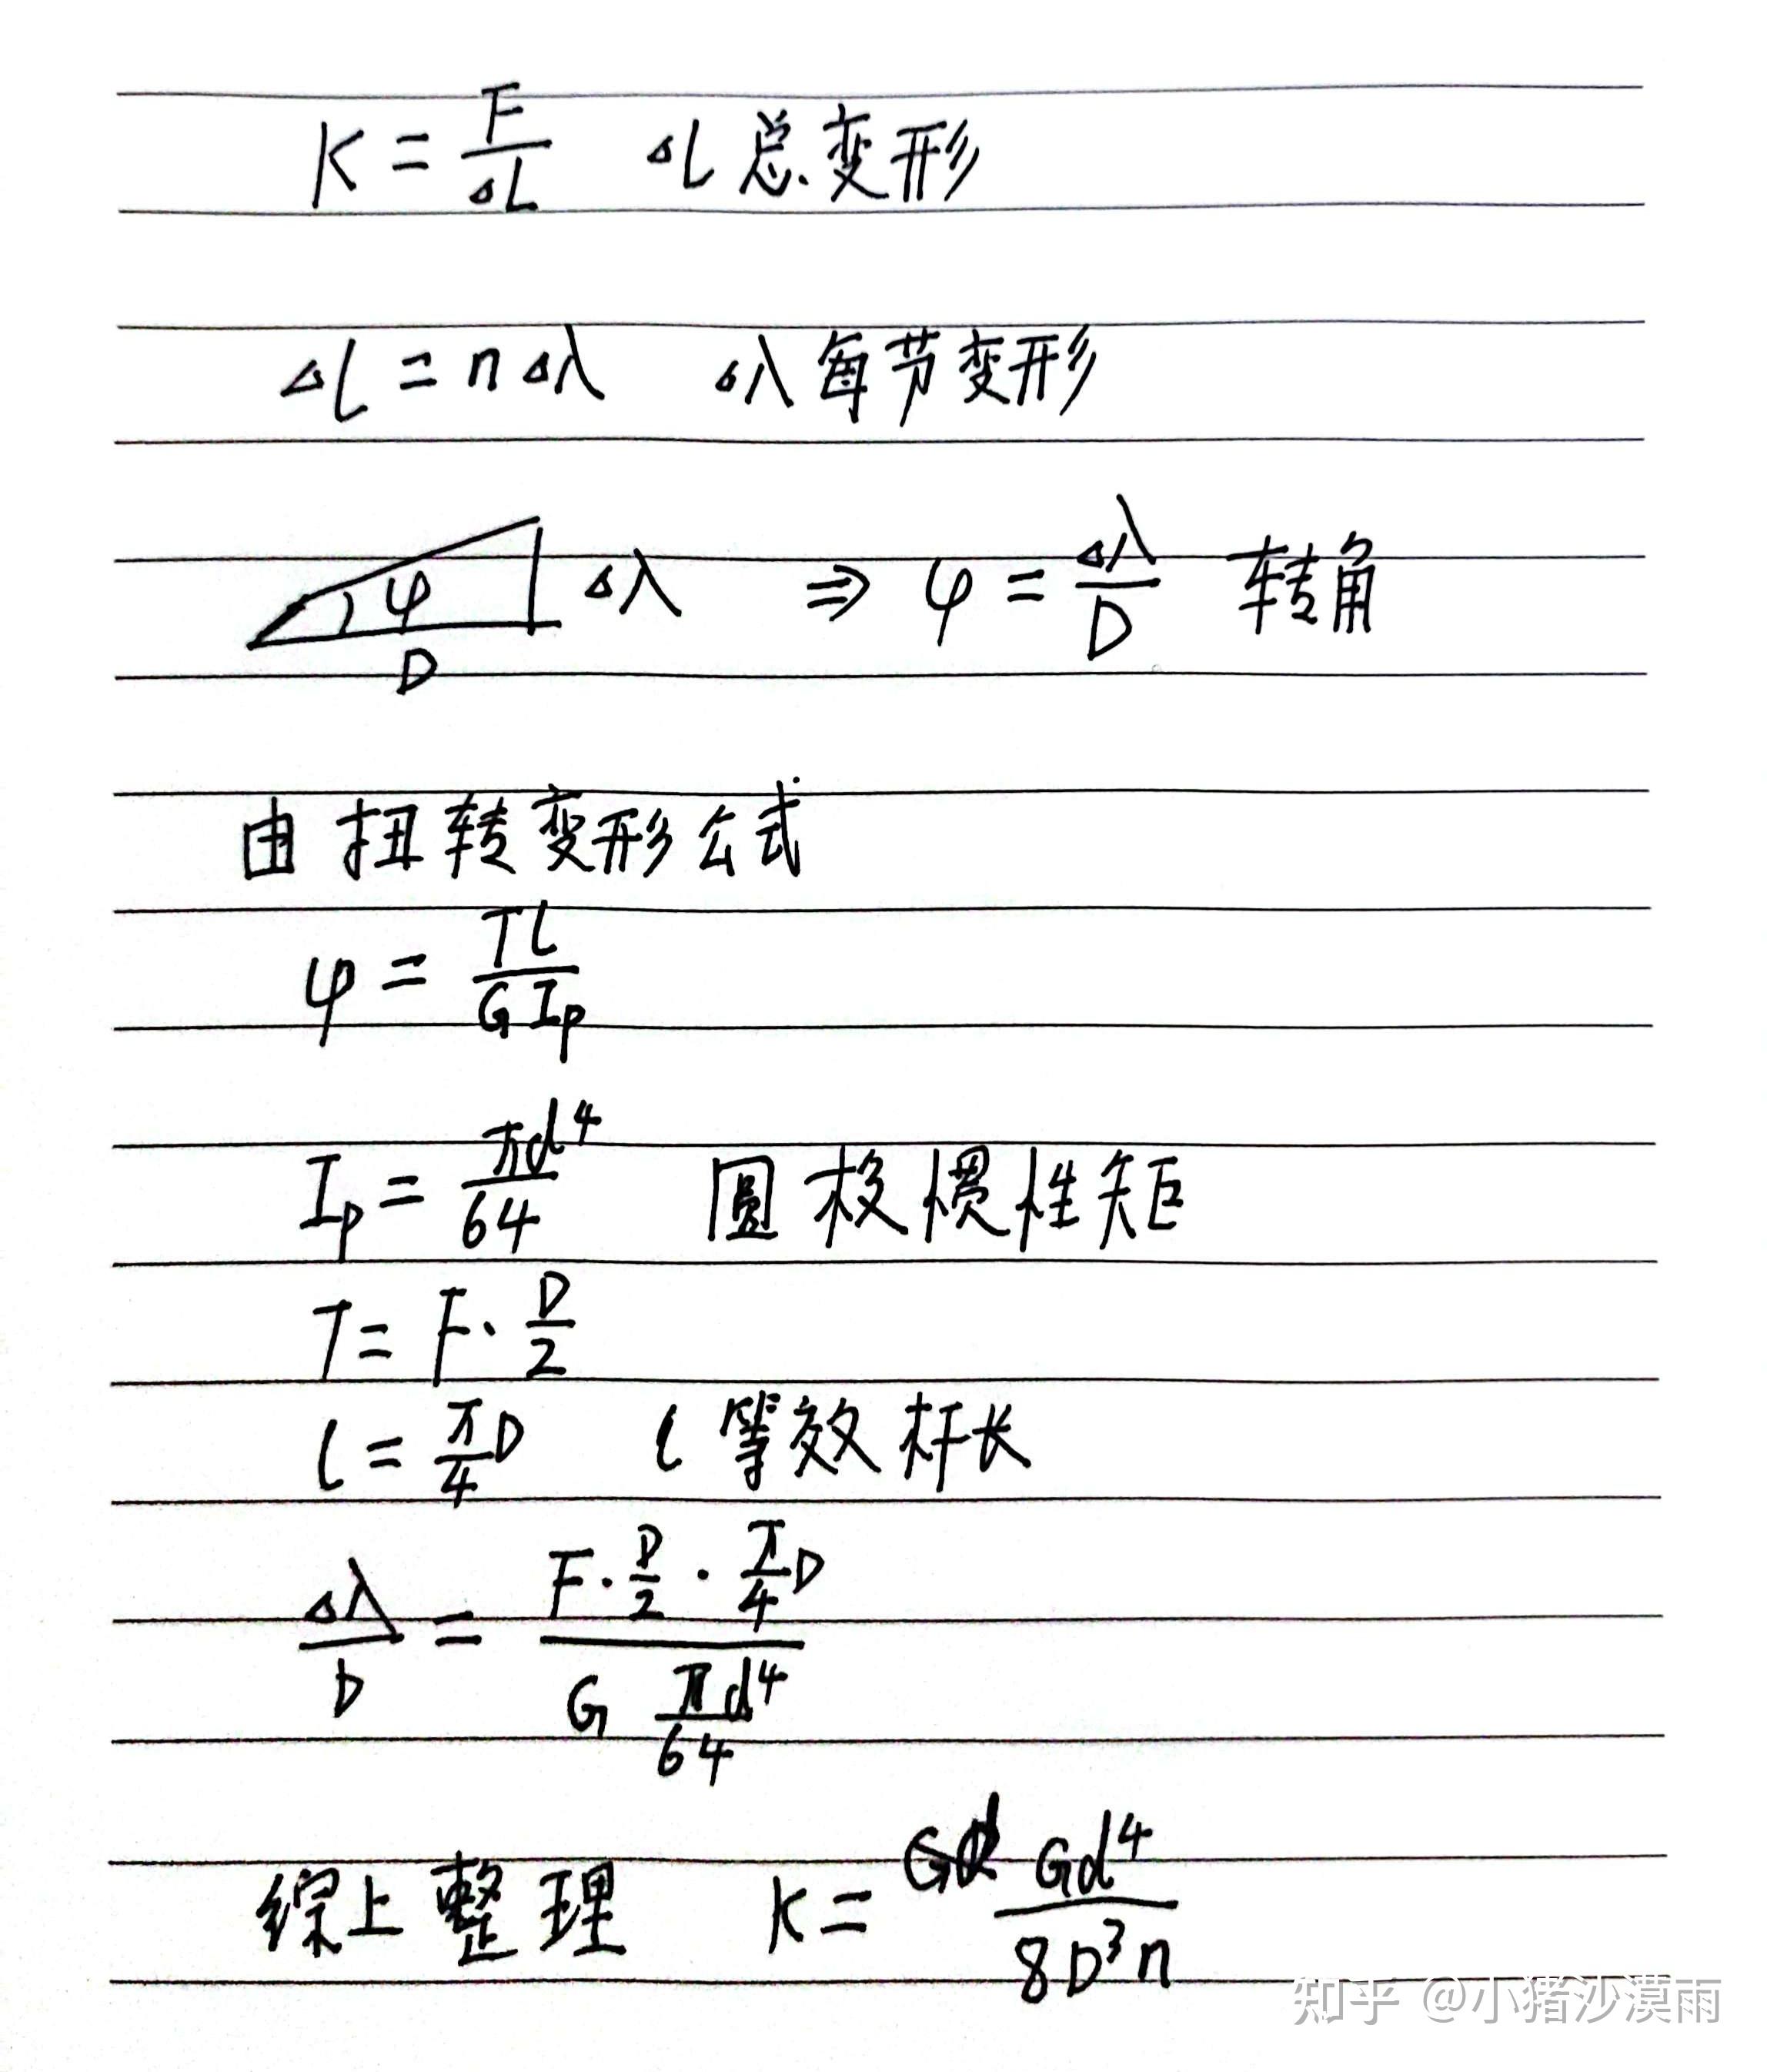 K = F/ΔL ΔL 总变形
Δl = nΔλ Δλ 每节变形
φ D Δλ ⇒ φ = Δλ/D 转角
由扭转变形公式
φ = Tl/GIp
Ip = πd⁴/64 圆极惯性矩
T = F·D/2
l = π/4 D l 等效杆长
Δλ/D = (F·D/2·π/4 D)/(G πd⁴/64)
综上整理 K = Gd⁴/8D³n
知乎 @小猪沙漠雨